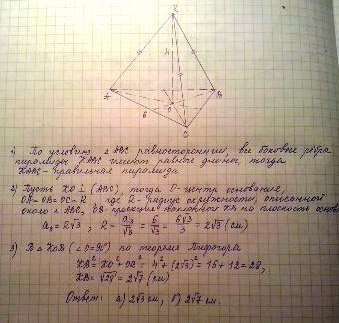 K
4
A
B
O
6
C
1) По условию △ABC равносторонний, все боковые ребра
пирамиды KABC имеют равные длины, тогда
KABC - правильная пирамида.
2) Пусть KO⊥(ABC), тогда O - центр основания,
OA=OB=OC=R, где R - радиус окружности, описанной
около △ABC, OB - проекция наклонной KB на плоскость основ
R = a₃/√3 = 6/√3 = 6√3/3 = 2√3 (см)
3) В △KOB (∠O=90°) по теореме Пифагора
KB² = KO² + OB² = 4² + (2√3)² = 16 + 12 = 28,
KB = √28 = 2√7 (см)
Ответ: а) 2√3 см, б) 2√7 см.